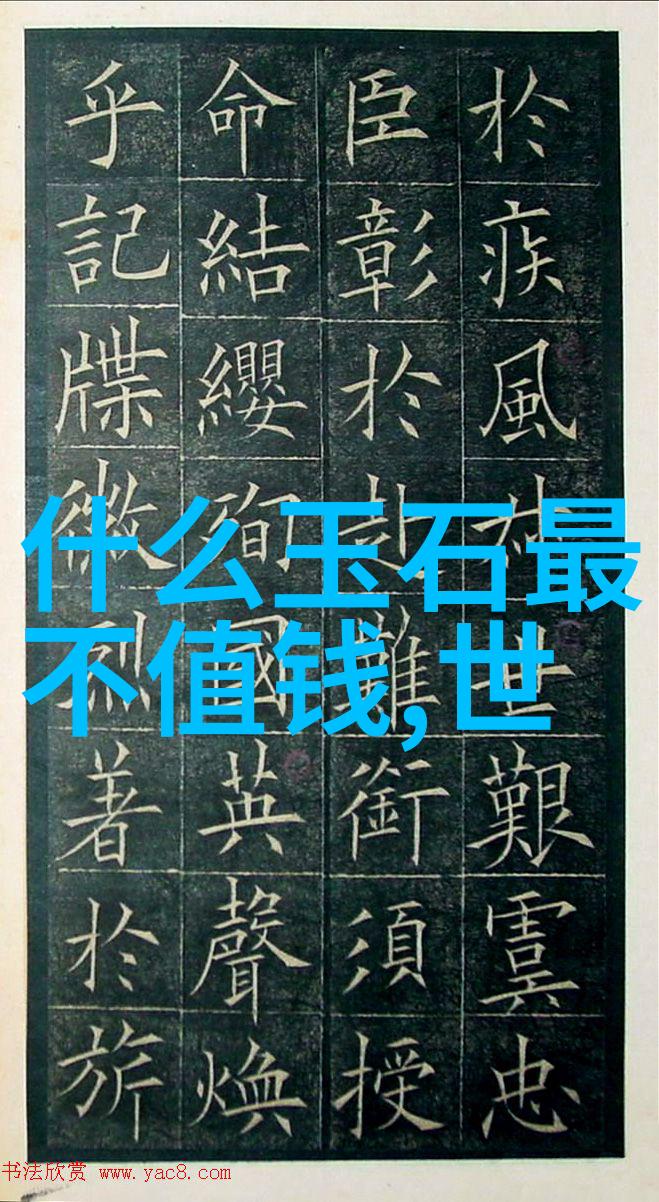 於疾風叔世艱虞忠
臣彰於赴難銜須授
命結纓殉國英聲煥
乎記牒徽烈著於旂
什么玉石最
不值钱,世
书法欣赏 www.yac8.com